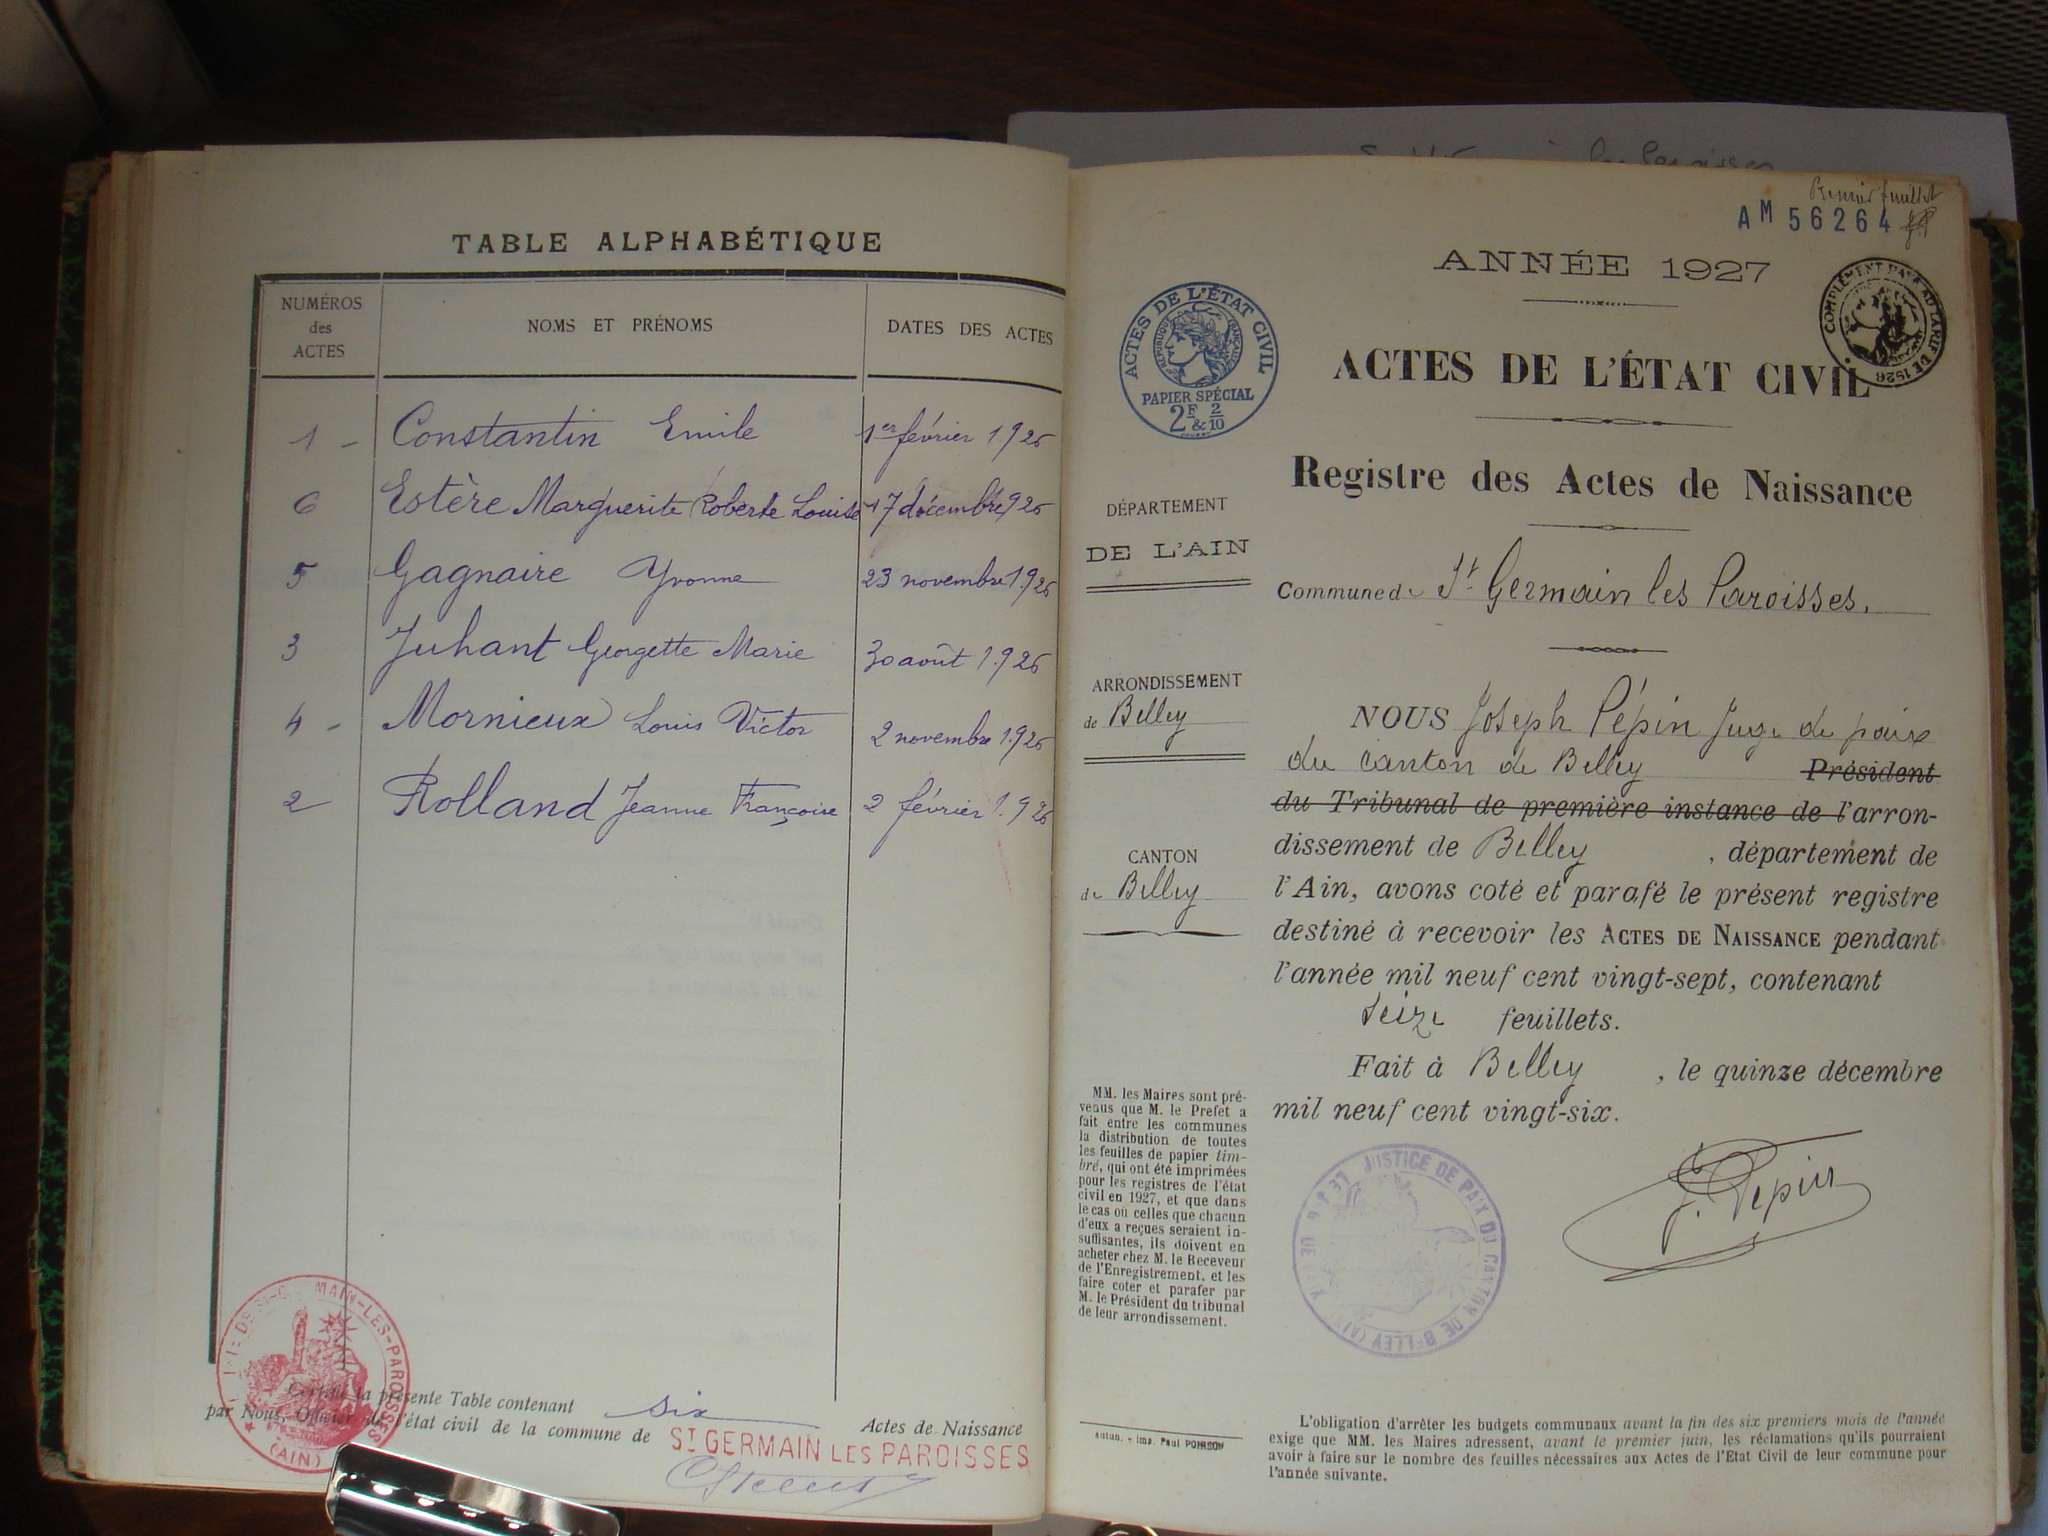 TABLE ALPHABÉTIQUE
NUMÉROS des ACTES
NOMS ET PRÉNOMS
DATES DES ACTES
1 - Constantin Emile 1er février 1926
6 Estère Marguerite Roberte Louise 17 décembre 1926
5 Gagnaire Yvonne 23 novembre 1.926
3 Juhant Georgette Marie 30 août 1.926
4 - Mornieux Louis Victor 2 novembre 1.926
2 Rolland Jeanne Françoise 2 février 1.926
Certifié la présente Table contenant six Actes de Naissance
par Nous, Officier de l'état civil de la commune de ST GERMAIN LES PAROISSES
MAIN-LES-PAROISSES
(AIN)
Premier feuillet
AM 56264
ANNÉE 1927
COMPLÉMENT PAYÉ AU TARIF DE 1926
ACTES DE L'ÉTAT CIVIL
RÉPUBLIQUE FRANÇAISE
PAPIER SPÉCIAL
2F & 2/10
ACTES DE L'ÉTAT CIVIL
Registre des Actes de Naissance
Commune de St Germain les Paroisses.
DÉPARTEMENT
DE L'AIN
ARRONDISSEMENT
de Belley
CANTON
de Belley
MM. les Maires sont pré-
venus que M. le Prefet a
fait entre les communes
la distribution de toutes
les feuilles de papier tim-
bré, qui ont été imprimées
pour les registres de l'état
civil en 1927, et que dans
le cas où celles que chacun
d'eux a reçues seraient in-
suffisantes, ils doivent en
acheter chez M. le Receveur
de l'Enregistrement, et les
faire coter et parafer par
M. le Président du tribunal
de leur arrondissement.
Autun. - Imp. Paul POIRSON
NOUS Joseph Pépin Juge de paix
du canton de Belley Président
du Tribunal de première instance de l'arron-
dissement de Belley , département de
l'Ain, avons coté et parafé le présent registre
destiné à recevoir les ACTES DE NAISSANCE pendant
l'année mil neuf cent vingt-sept, contenant
seize feuillets.
Fait à Belley , le quinze décembre
mil neuf cent vingt-six.
J. Pepin
JUSTICE DE PAIX DU CANTON DE BELLEY (AIN)
L'obligation d'arrêter les budgets communaux avant la fin des six premiers mois de l'année
exige que MM. les Maires adressent, avant le premier juin, les réclamations qu'ils pourraient
avoir à faire sur le nombre des feuilles nécessaires aux Actes de l'Etat Civil de leur commune pour
l'année suivante.